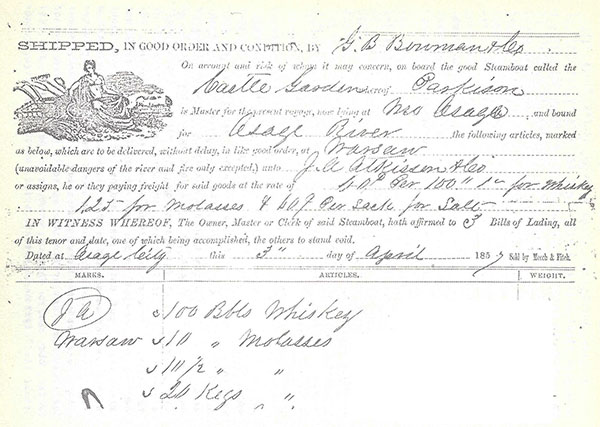 SHIPPED, IN GOOD ORDER AND CONDITION, BY G. B Bowman & Co
On account and risk of whom it may concern, on board the good Steamboat called the
Castle Garden whereof Parkison
is Master for the present voyage, now lying at Mo Osage and bound
for Osage River the following articles, marked
as below, which are to be delivered, without delay, in like good order, at Warsaw
(unavoidable dangers of the river and fire only excepted,) unto J. A Atkisson & Co
or assigns, he or they paying freight for said goods at the rate of Per 100 for Whiskey
125 for Molasses & 60 Per Sack for Salt
IN WITNESS WHEREOF, The Owner, Master or Clerk of said Steamboat, hath affirmed to 3 Bills of Lading, all
of this tenor and date, one of which being accomplished, the others to stand void.
Dated at Osage City this 3" day of April 1857 Sold by Meech & Fitch.
MARKS. ARTICLES. WEIGHT.
JA 100 Bbls Whiskey
Warsaw 10 " Molasses
10 1/2 " "
20 Kegs "